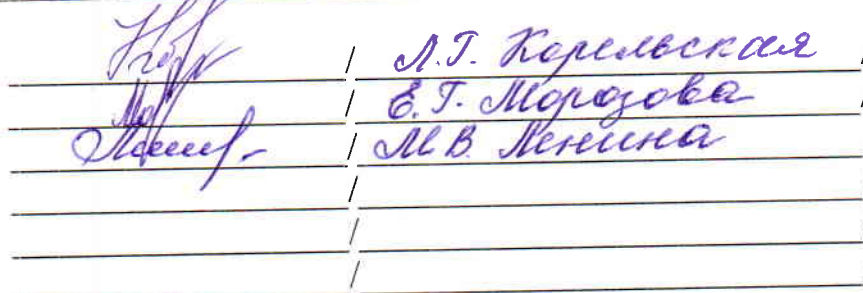 / Л.Г. Корельская /
/ Е.Г. Морозова /
/ М.В. Ленина /
/
/
/